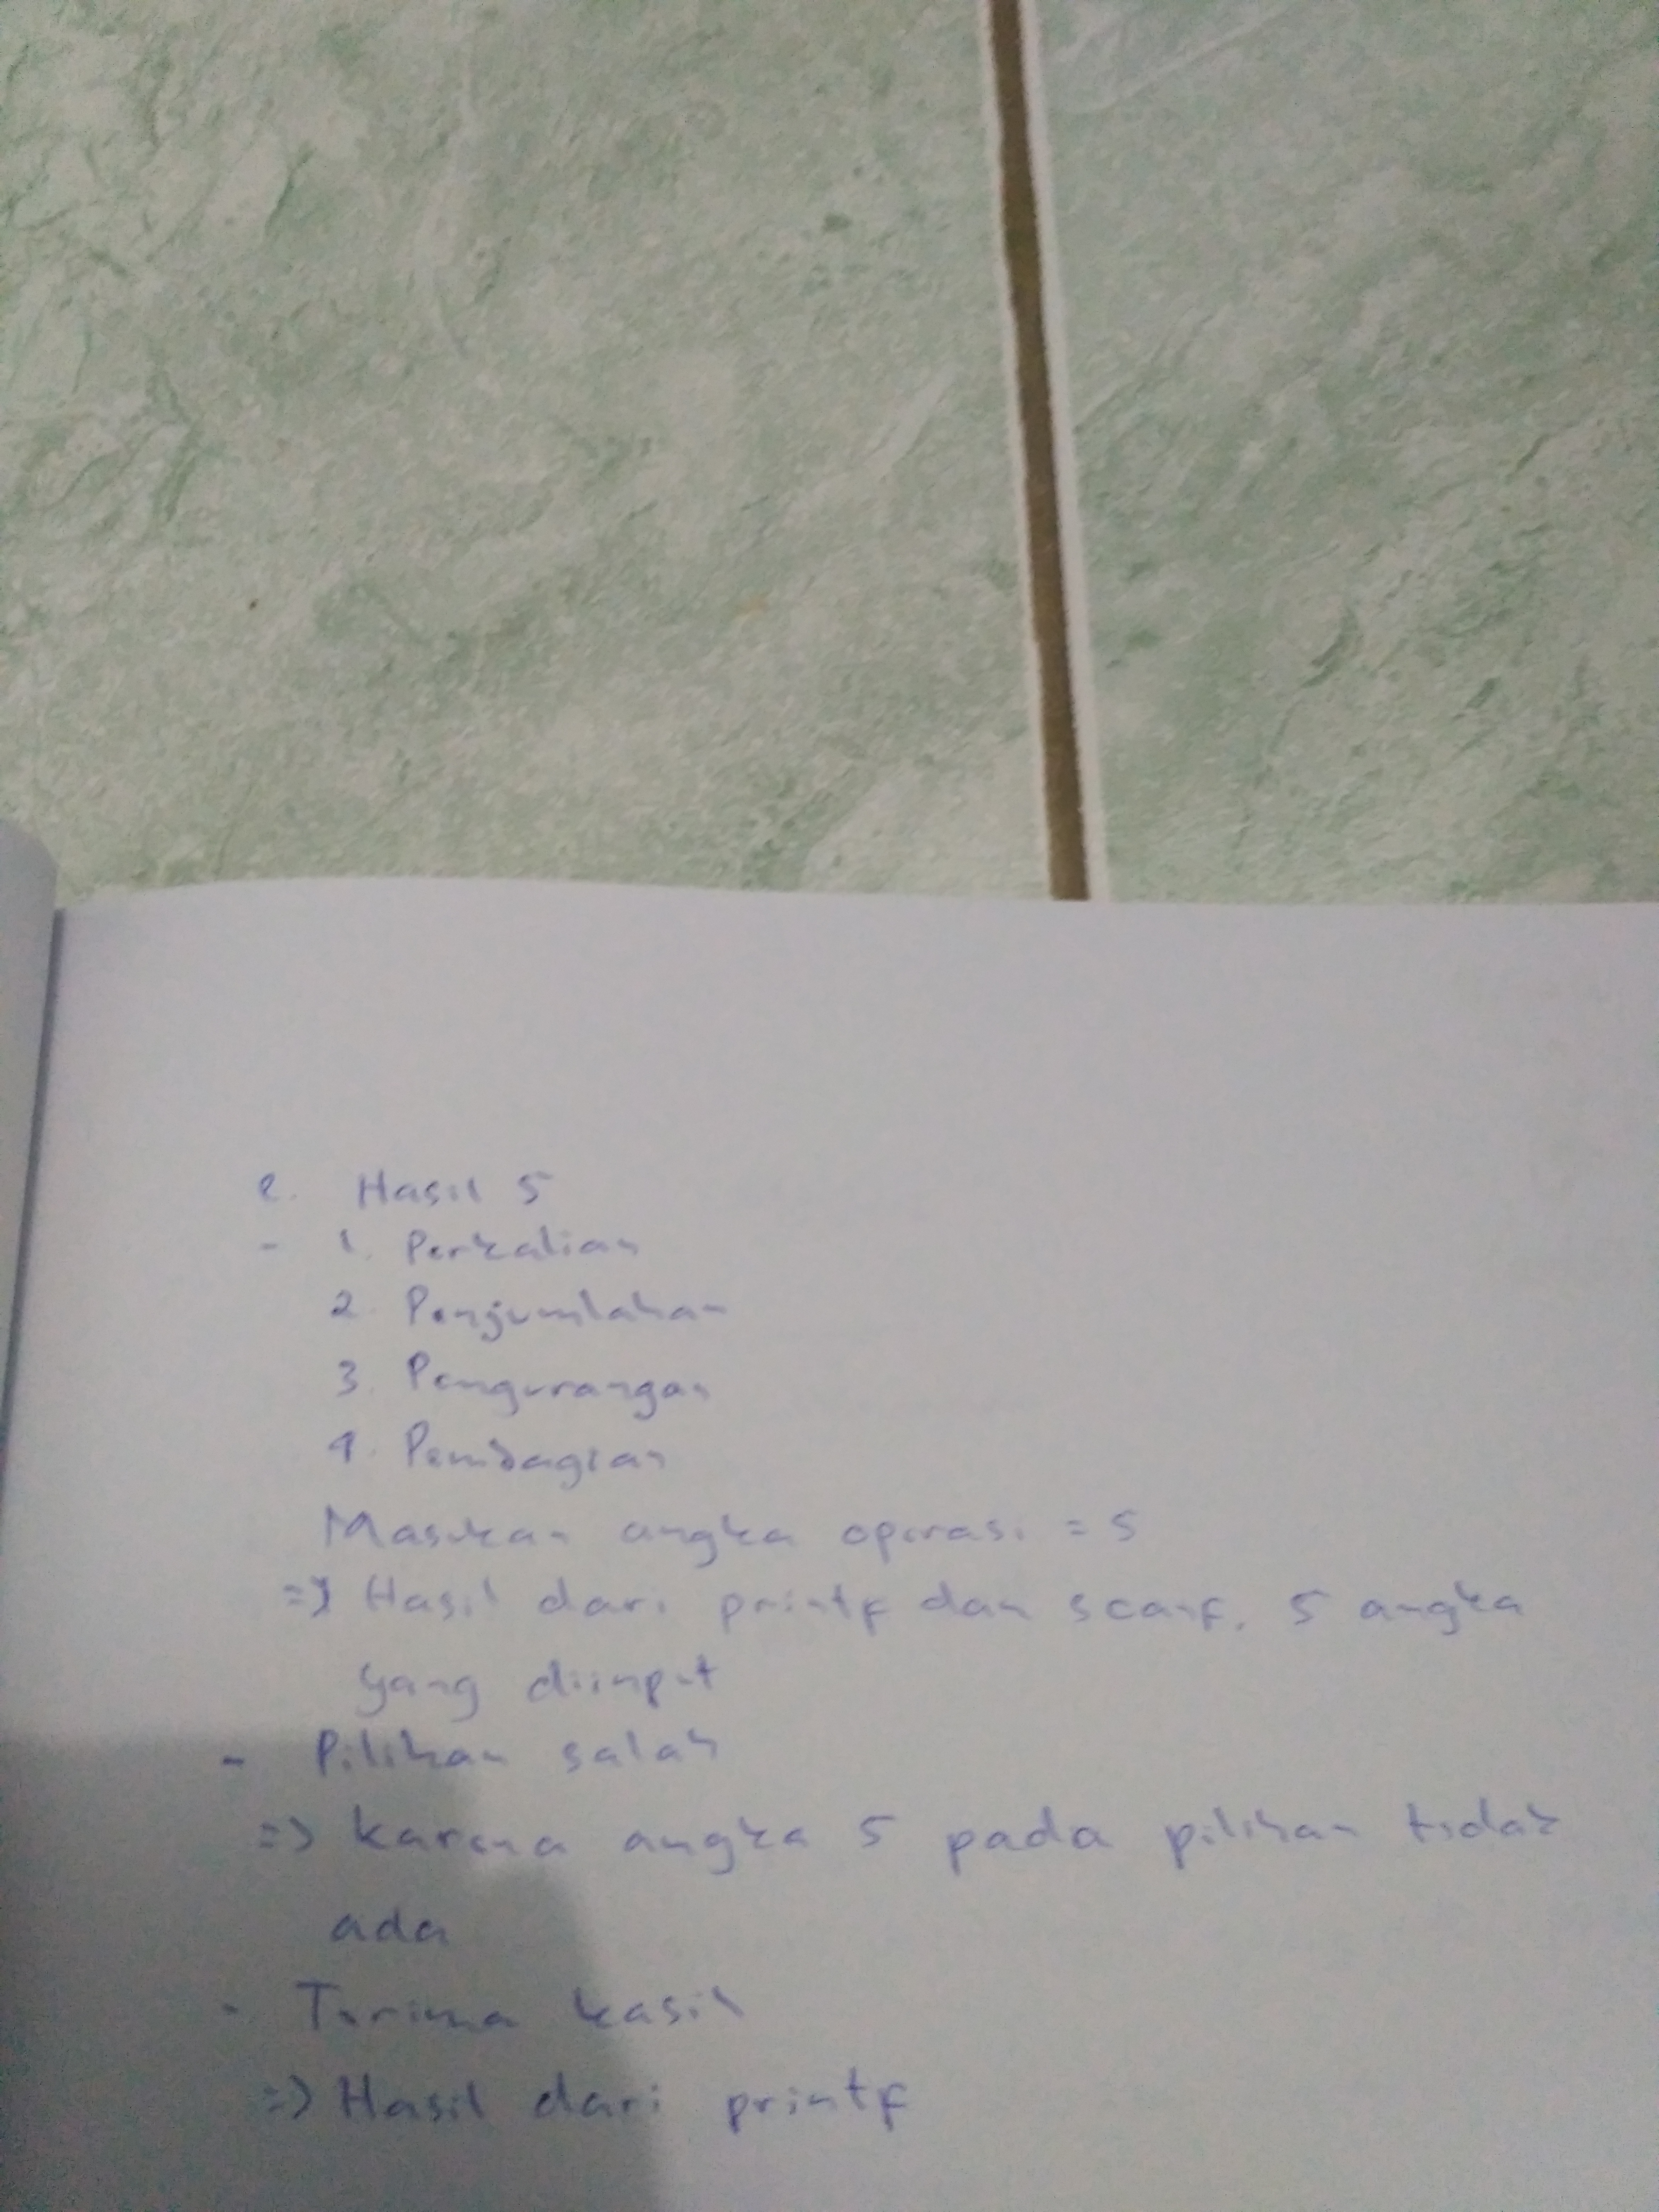 e. Hasil 5
- 1. Perkalian
2. Penjumlahan
3. Pengurangan
4. Pembagian
Masukan angka operasi = 5
=> Hasil dari printf dan scanf. 5 angka
yang diinput
- Pilihan salah
=> karena angka 5 pada pilihan tidak
ada
- Terima kasih
=> Hasil dari printf